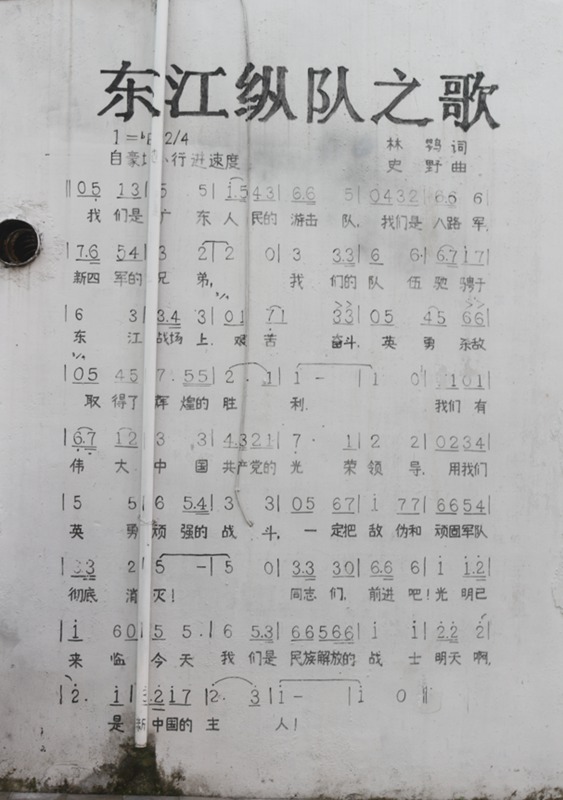 东江纵队之歌
1=♭B 2/4
林鹗词
自豪地、行进速度
史野曲
‖05 13|5 5|1.543|6.6 5|0432|6.6 6|
我们是广东人民的游击队,我们是八路军,
|7.6 54|3 2|2 0|3 3.3|6 6.|6.717|
新四军的兄弟, 我们的队伍驰骋于
|6 3|3.4 3|01 71|33|05 45 66|
东江战场上,艰苦奋斗,英勇杀敌
|05 45|7.55|2. 1|1 -|1 0|101|
取得了辉煌的胜利. 我们有
|6.7 12|3 3|4.321|7. 1|2 2|0234|
伟大中国共产党的光荣领导,用我们
5 5|6 5.4|3 3|05 67|1 77|6654|
英勇顽强的战斗,一定把敌伪和顽固军队
|3.3 2|5 -|5 0|3.3 30|6.6 6|1 1.2|
彻底消灭! 同志们,前进吧!光明已
|1 60|5 5.|6 5.3|66566|1 1|2.2 2|
来临今天我们是民族解放的战士明天啊,
|2. 1|3.217|2. 3|1 -|1 0‖
是新中国的主人!